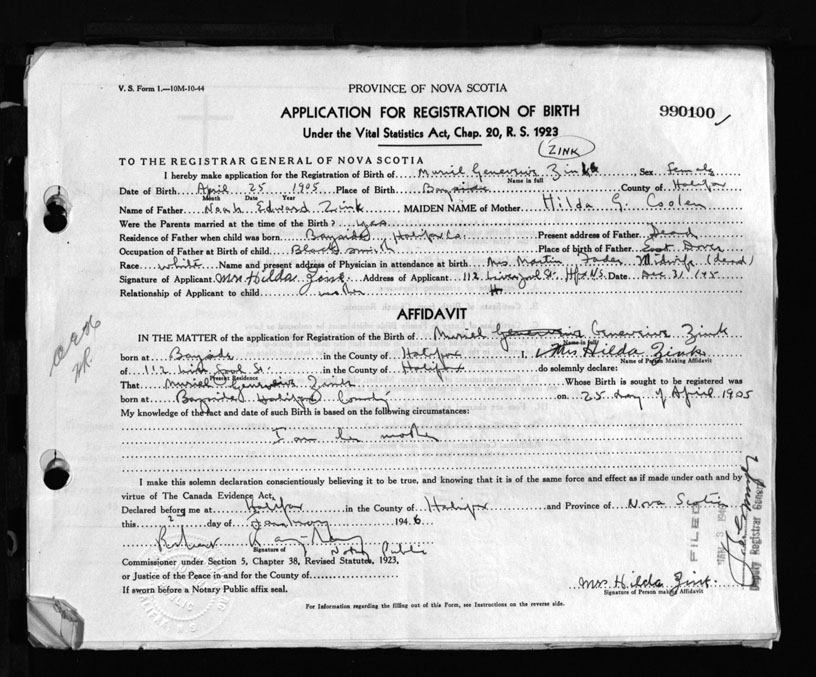 V. S. Form 1.—10M-10-44
PROVINCE OF NOVA SCOTIA
APPLICATION FOR REGISTRATION OF BIRTH
990100
Under the Vital Statistics Act, Chap. 20, R. S. 1923
ZINK
TO THE REGISTRAR GENERAL OF NOVA SCOTIA
I hereby make application for the Registration of Birth of Muriel Genevieve Zink Sex Female
Name in full
Date of Birth April 25 1905 Place of Birth Bayside County of Halifax
Month Date Year
Name of Father Noah Edward Zink MAIDEN NAME of Mother Hilda G. Coolen
Were the Parents married at the time of the Birth? yes
Residence of Father when child was born Bayside Halifax Co. Present address of Father Dead
Occupation of Father at Birth of child Blacksmith Place of birth of Father East Dover
Race white Name and present address of Physician in attendance at birth Mrs. Martin Fader Midwife (dead)
Signature of Applicant Mrs Hilda Zink Address of Applicant 112 Liverpool St. Hfx N.S. Date Dec 31 1945
Relationship of Applicant to child mother
AFFIDAVIT
IN THE MATTER of the application for Registration of the Birth of Muriel Genevieve Zink
Name in full
born at Bayside in the County of Halifax I, Mrs Hilda Zink
Name of Person Making Affidavit
of 112 St. in the County of Halifax do solemnly declare:
Present Residence
That Muriel Genevieve Zink Whose Birth is sought to be registered was
born at Bayside Halifax County on 25 day of April 1905
My knowledge of the fact and date of such Birth is based on the following circumstances:
I am her mother
I make this solemn declaration conscientiously believing it to be true, and knowing that it is of the same force and effect as if made under oath and by
virtue of The Canada Evidence Act.
Declared before me at Halifax in the County of Halifax and Province of Nova Scotia
this 2nd day of January 1946
Signature of Notary Public
Commissioner under Section 5, Chapter 38, Revised Statutes, 1923,
or Justice of the Peace in and for the County of
If sworn before a Notary Public affix seal.
Mrs Hilda Zink
Signature of Person making Affidavit
For Information regarding the filling out of this Form, see Instructions on the reverse side.
FILED
Deputy Registrar General